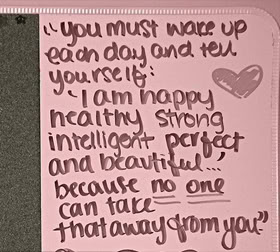 "you must wake up
each day and tell
yourself:
"I am happy
healthy strong
intelligent perfect
and beautiful...'
because no one
can take
that away from you."